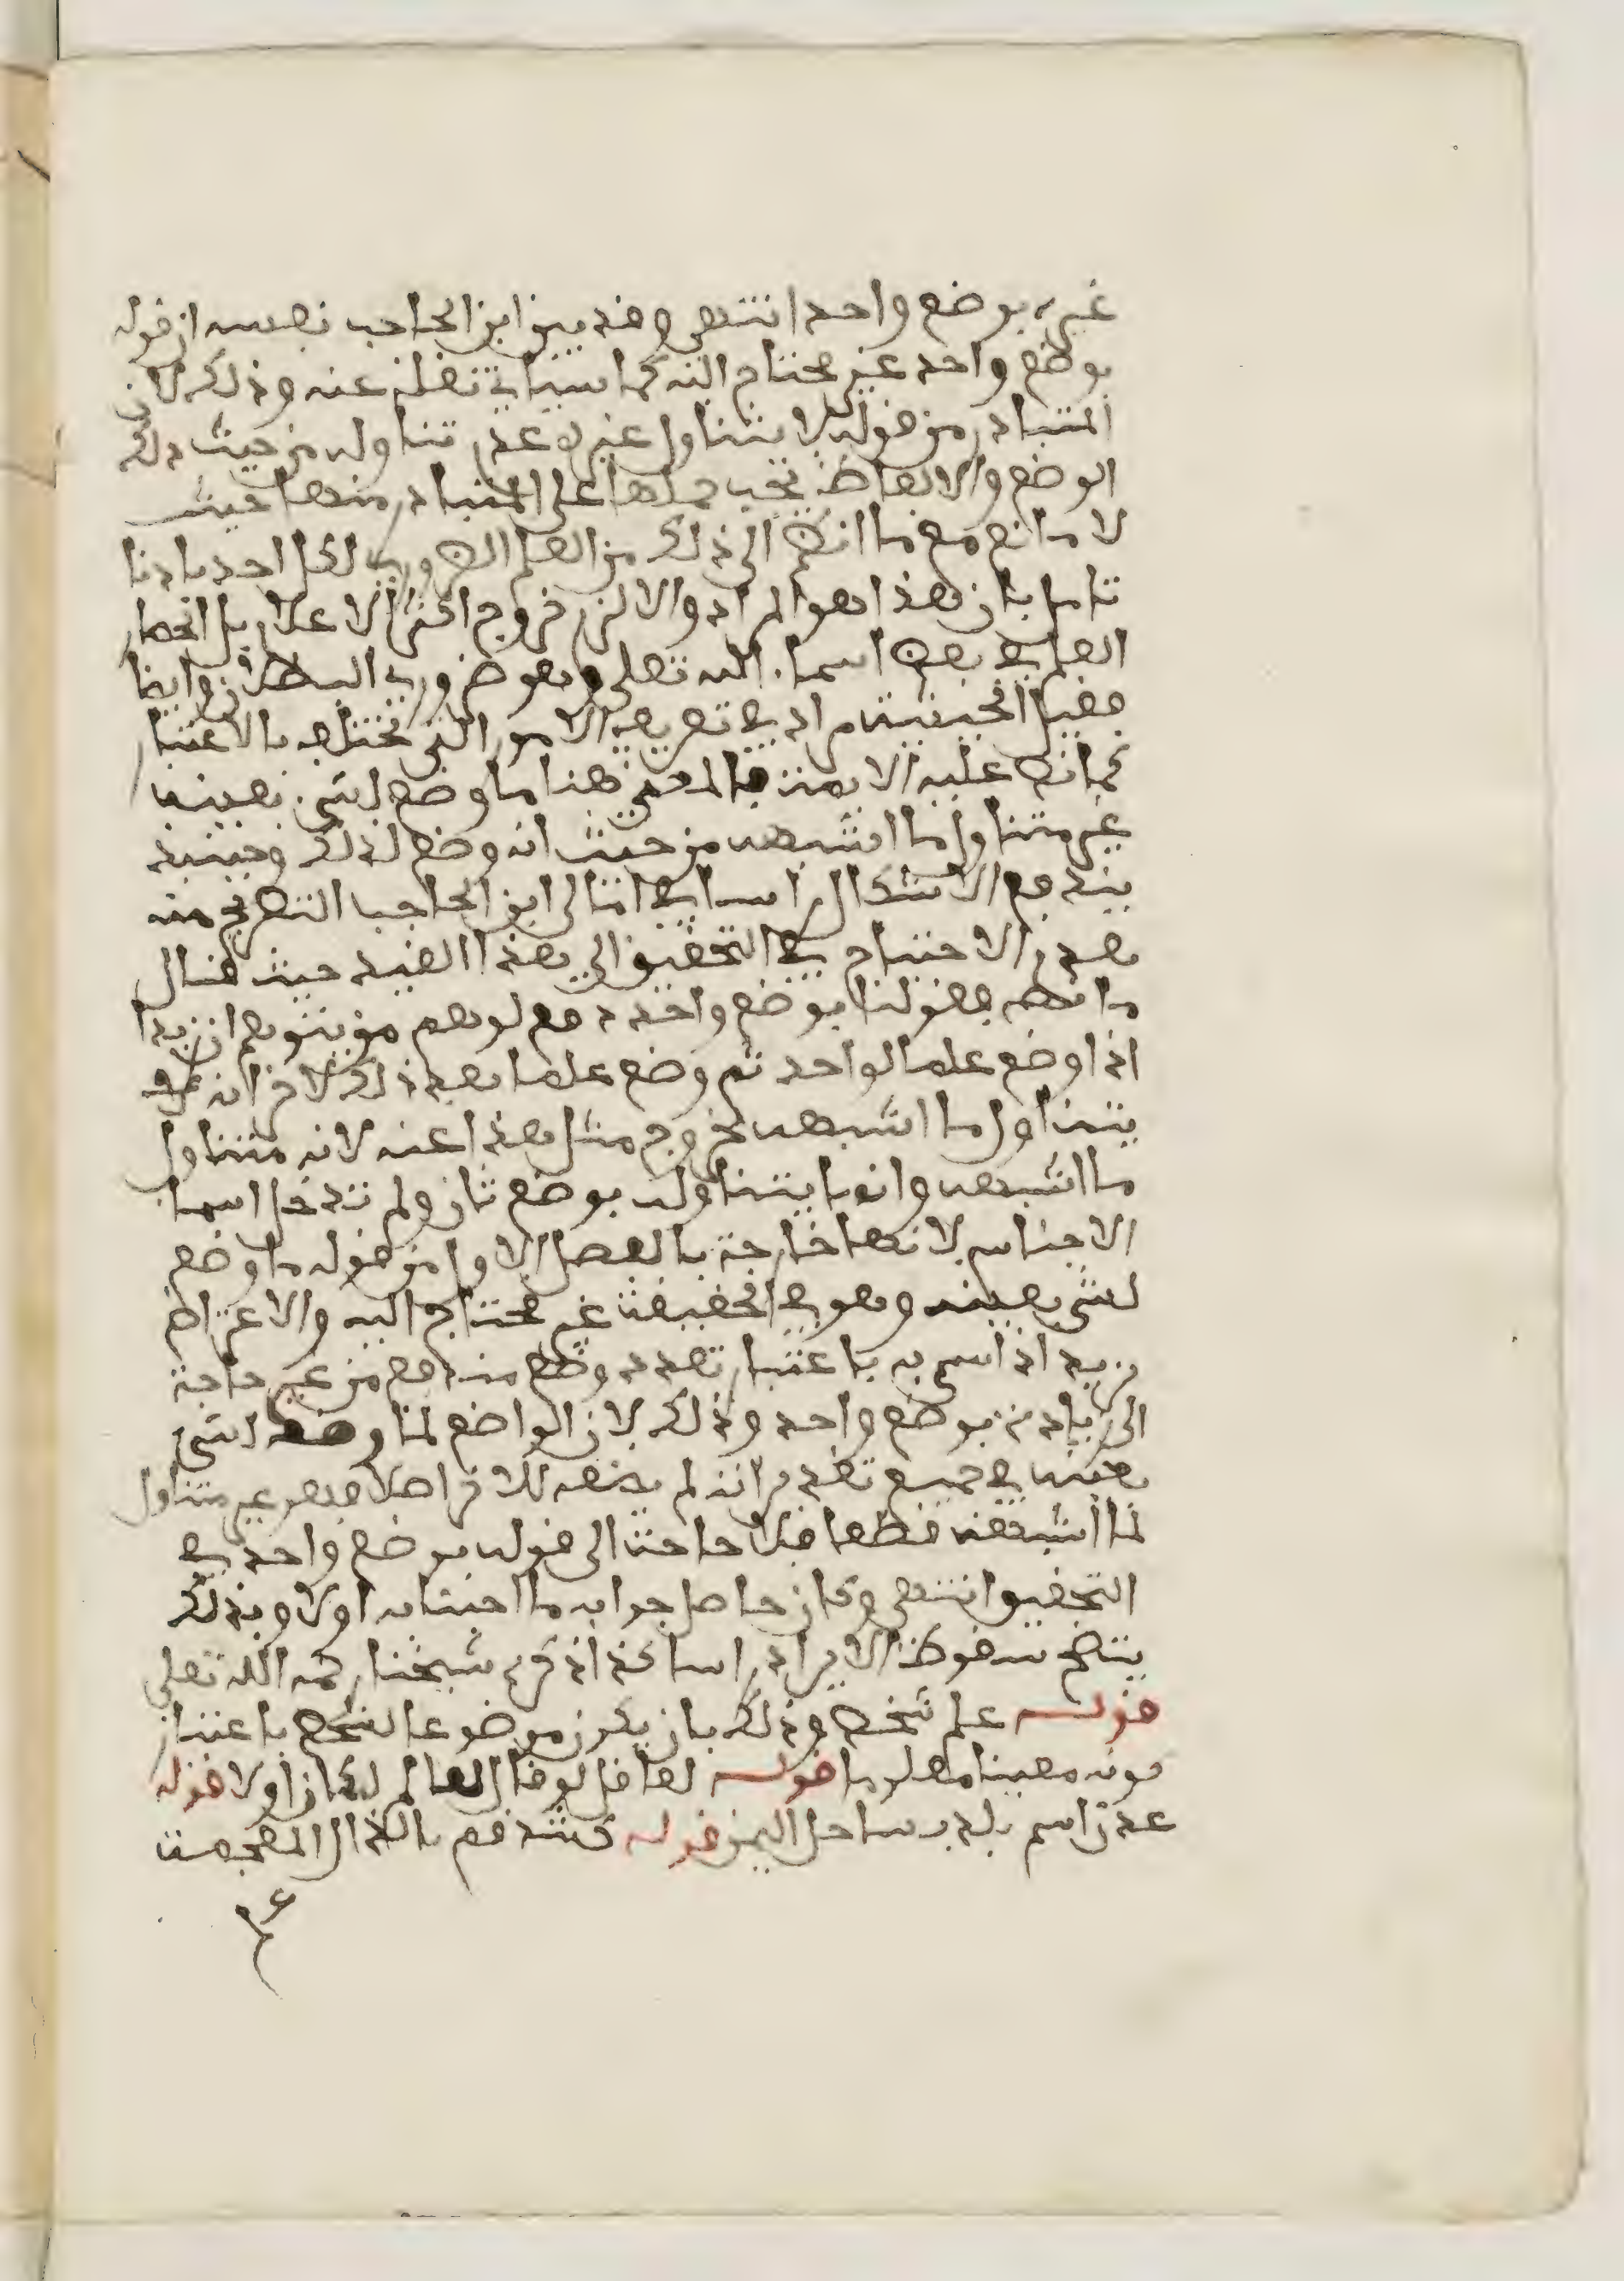 غيره بوضع واحد انتهى وقد بين ابن الحاجب نفسه ان قوله
بوضع واحد غير محتاج اليه كما سياتي نقله عنه وذلك لان
المتبادر من قوله لا يتناول غيره عدم تناوله من حيث ذلك
الوضع والالفاظ يجب حملها على المتبادر منها حيث
لا مانع مع ما انضم الى ذلك من العلم الضروري لكل احد بادنا
تامل بان هذا هو المراد والا لزم خروج اكثر الاعلام بل انحصار
العلم في بعض اسماء الله تعلى وهو ضروري البطلان وايضا
فقيد الحيثية مراد في تعريف الامور التي تختلف بالاعتبار
كما نص عليه الايمة فالمعنى هنا ما وضع لشيء بعينه
غير متناول ما اشبهه من حيث انه وضع لذلك وحينيذ
يندفع الاشكال راسا في امالي ابن الحاجب التصريح منه
بعدم الاحتياج في التحقيق الى هذا القيد حيث قال
ما نصه فقولنا بوضع واحد دفع لوهم من يتوهم ان زيدا
اذا وضع علما لواحد ثم وضع علما بعد ذلك لاخر انه
يتناول ما اشبهه بخروج مثل هذا عنه لانه متناول
ما اشبهه وانما يتناوله بوضع ثان ولم تدخل اسماء
الاجناس لانها خارجة بالفصل الاول من قوله ما وضع
لشيء بعينه وهو في الحقيقة غير محتاج اليه والاعتراض
بزيد اذا سمي به باعتبار تعدد وضع مندفع من غير حاجة
الى زيادة بوضع واحد وذلك لان الواضع لما وضعه لشيء
بعينه في جميع تقدم انه لم يضعه للاخر اصلا فهو غير متناول
لما اشبهه قطعا فلا حاجة الى قوله بوضع واحد في
التحقيق انتهى وكان حاصل جوابه ما اجبنا به اولا وبذلك
يتضح سقوط الايراد راسا كذا ذكره شيخنا رحمه الله تعلى
قوله علم شخص وذلك بان يكون موضوعا لشخص باعتبار
كونه معينا معلوما قوله لعاقل لو قال لعالم لكان اولا قوله
عدن اسم بلد بساحل اليمن قوله شذقم بالذال المعجمة